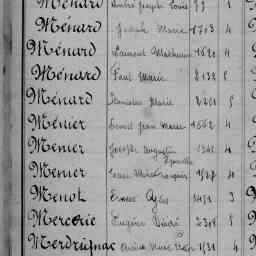 Ménard André Joseph Louis 1
Ménard Joseph Marie 1703 4
Ménard Laurent Mathurin 4
Ménard Paul Marie 2132 5
Ménard Stanislas Marie 5
Ménier Ernest Jean Marie 1662 4
Menier Joseph Augustin 4
Menier Jean Marie François 4
Menot Ernest 1451 3
Mercerie Eugène Désiré 5
Merdrignac 1531 4